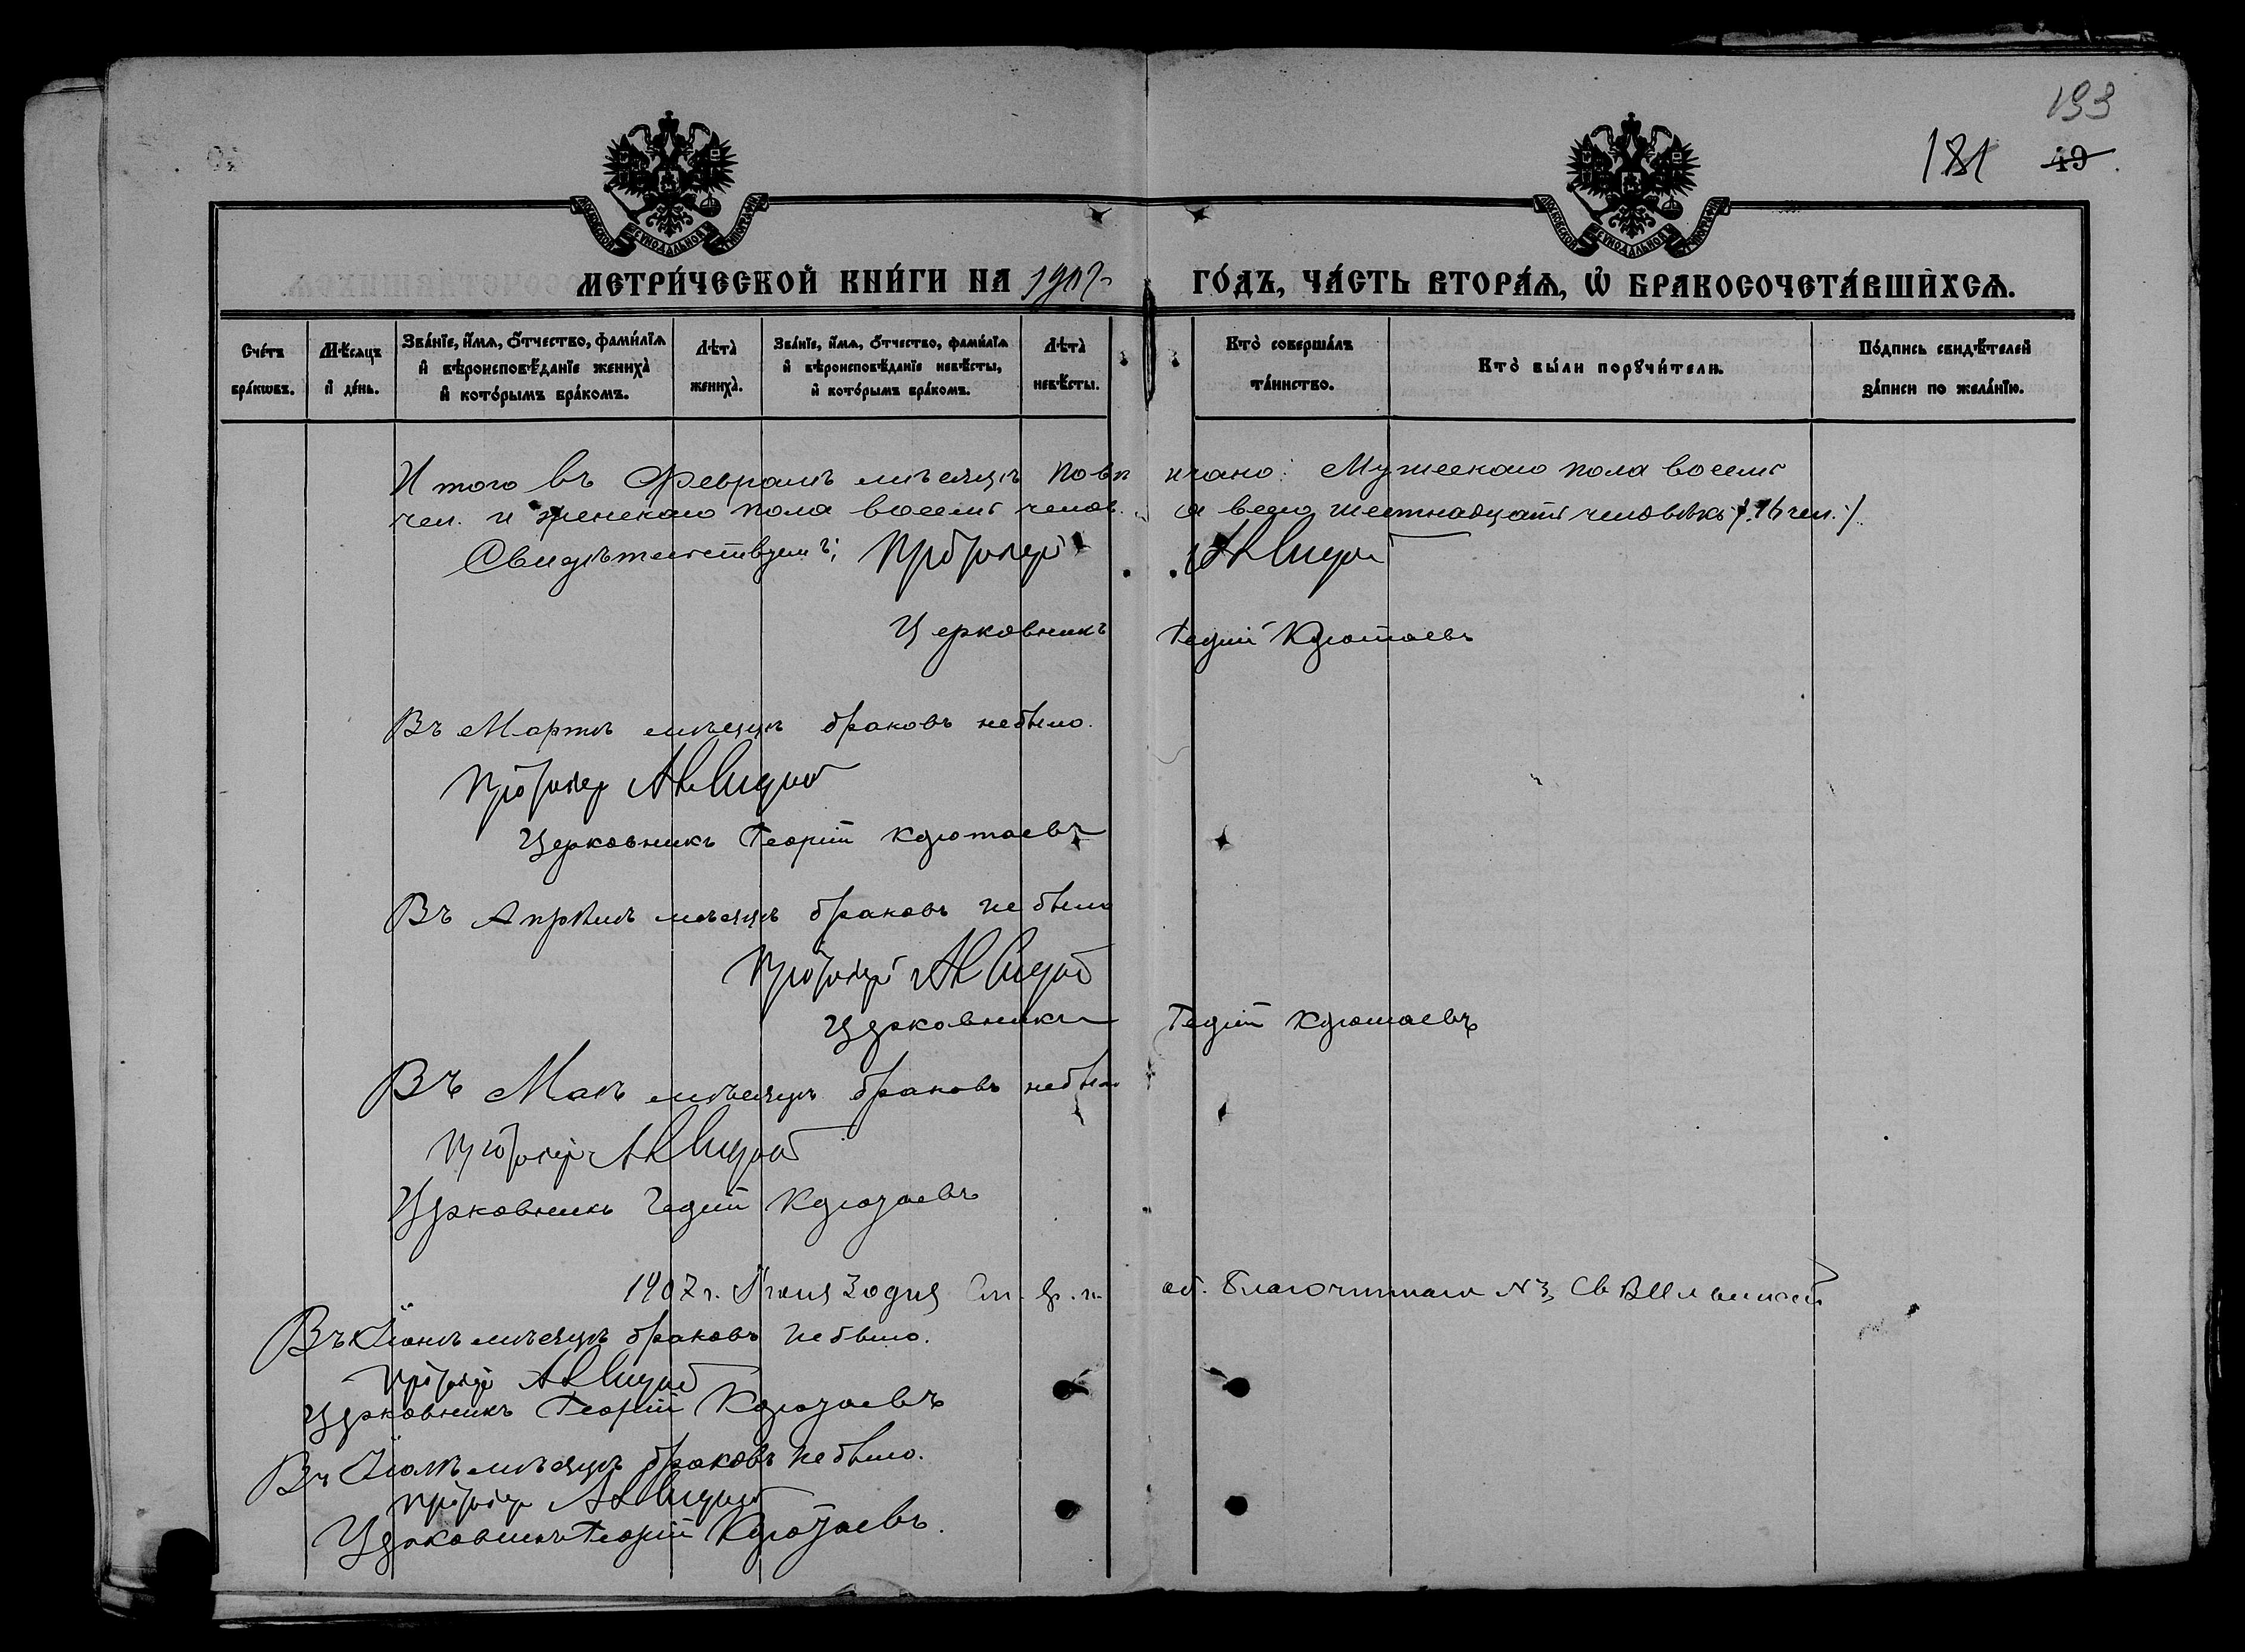 193
181 49
МЕТРИ́ЧЕСКОЙ КНИ́ГИ НА 1907 ГО́ДЪ, ЧА́СТЬ ВТОРА́Ѧ, Ѡ҆ БРАКОСОЧЕТА́ВШИХСѦ.
Сче́тъ бра́кѡвъ.
Мѣ́сѧцъ и҆ де́нь.
Зва́нїе, и҆́мѧ, ѻ҆́тчество, фами́лїѧ и҆ вѣроисповѣ́данїе жениха̀ и҆ кото́рымъ бра́комъ.
Лѣта̀ жениха̀.
Зва́нїе, и҆́мѧ, ѻ҆́тчество, фами́лїѧ и҆ вѣроисповѣ́данїе невѣ́сты, и҆ кото́рымъ бра́комъ.
Лѣта̀ невѣ́сты.
Кто̀ соверша́лъ та́инство.
Кто̀ бы́ли порꙋчи́тели.
По́дпись свидѣ́телей за́писи по жела́нїю.
Итого въ Февралѣ мѣсяцѣ повѣнчано: Мужескаго пола восемь
чел. и женскаго пола восемь челов. а всего шестнадцать человѣкъ /16 чел./
Свидѣтельствуемъ: Протоіерей
Церковникъ Георгій
Въ Мартѣ мѣсяцѣ браковъ небыло.
Протоіер
Церковникъ Георгій
Въ Апрѣлѣ мѣсяцѣ браковъ не было
Протоіерей
Церковникъ Георгій
Въ Маѣ мѣсяцѣ браковъ небыло
Протоіерей
Церковникъ Георгій
1907 г. Іюня дня Благочинный Св.
Въ Іюнѣ мѣсяцѣ браковъ не было.
Протоіерей
Церковникъ Георгій
Въ Іюлѣ мѣсяцѣ браковъ не было.
Протоіерей
Церковникъ Георгій